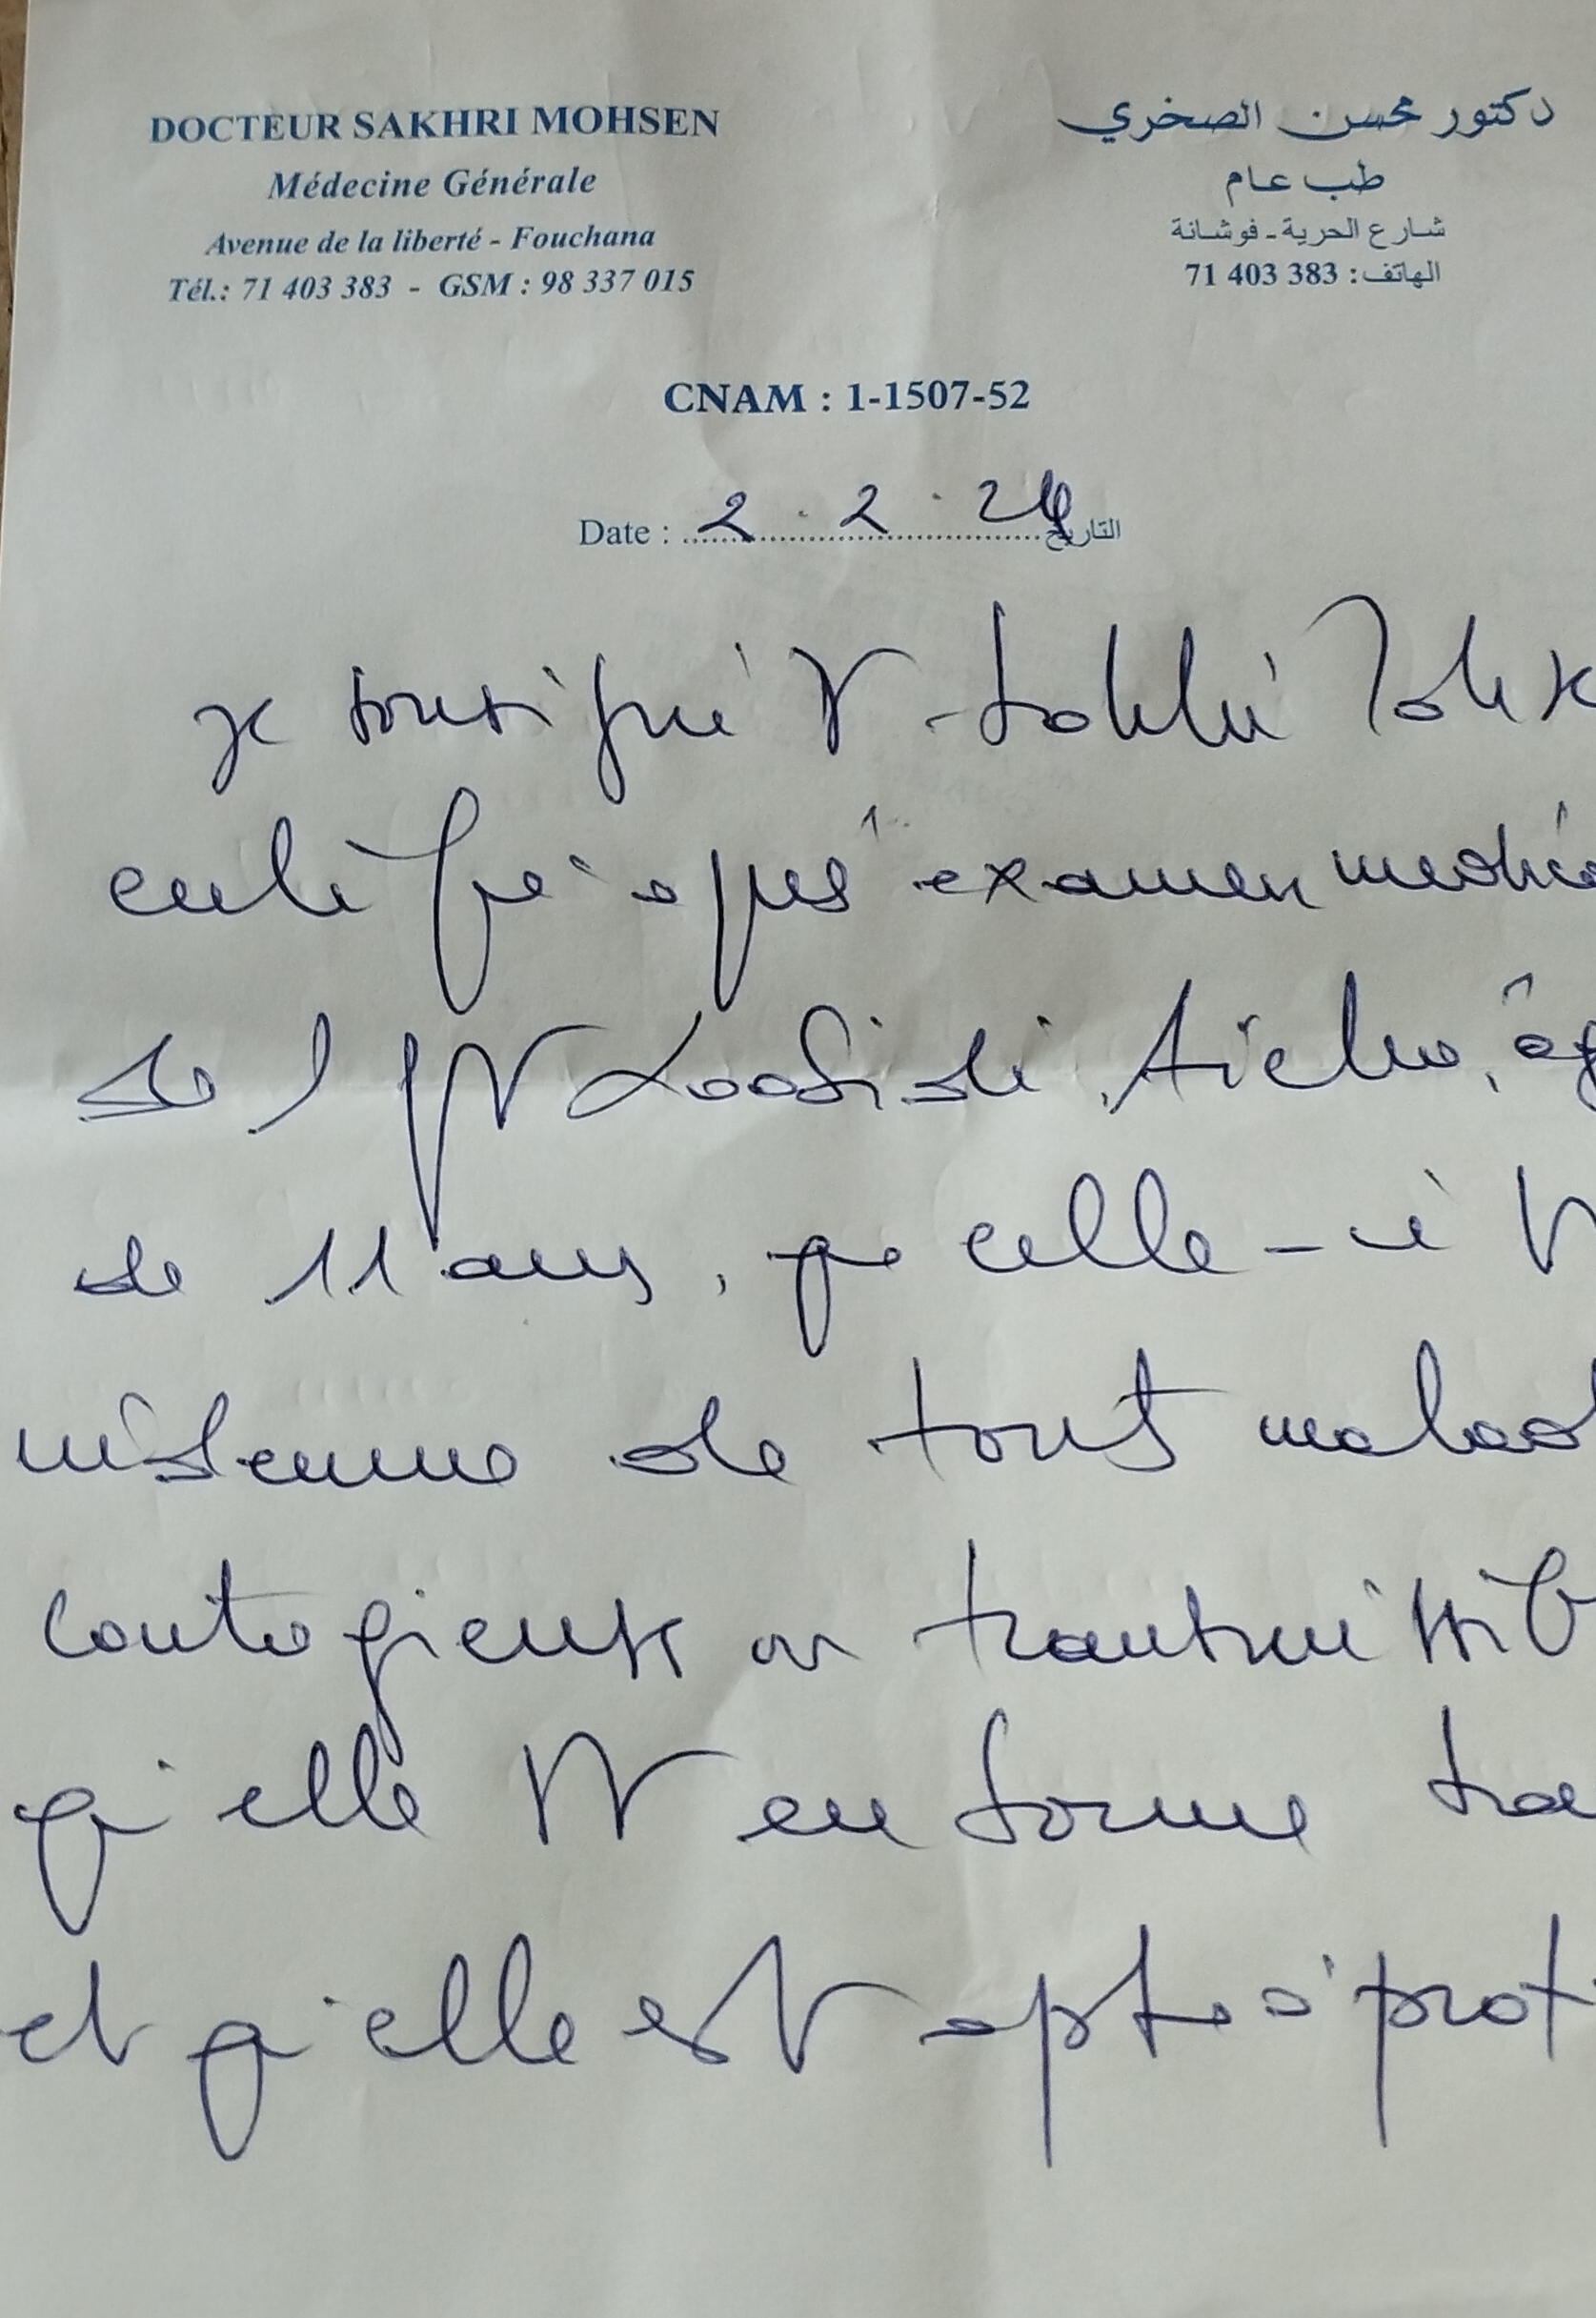 DOCTEUR SAKHRI MOHSEN
Médecine Générale
Avenue de la liberté - Fouchana
Tél.: 71 403 383 - GSM : 98 337 015
دكتور محسن الصخري
طب عام
شارع الحرية - فوشانة
الهاتف: 383 403 71
CNAM : 1-1507-52
Date : 2 . 2 . 24 التاريخ
je soussigné Dr Sakhri Mohse
certifie après examen médica
de 11 ans, que celle-ci
indemne de tout malad
contagieuse ou transmissib
qu'elle en forme
et qu'elle est apte à prati